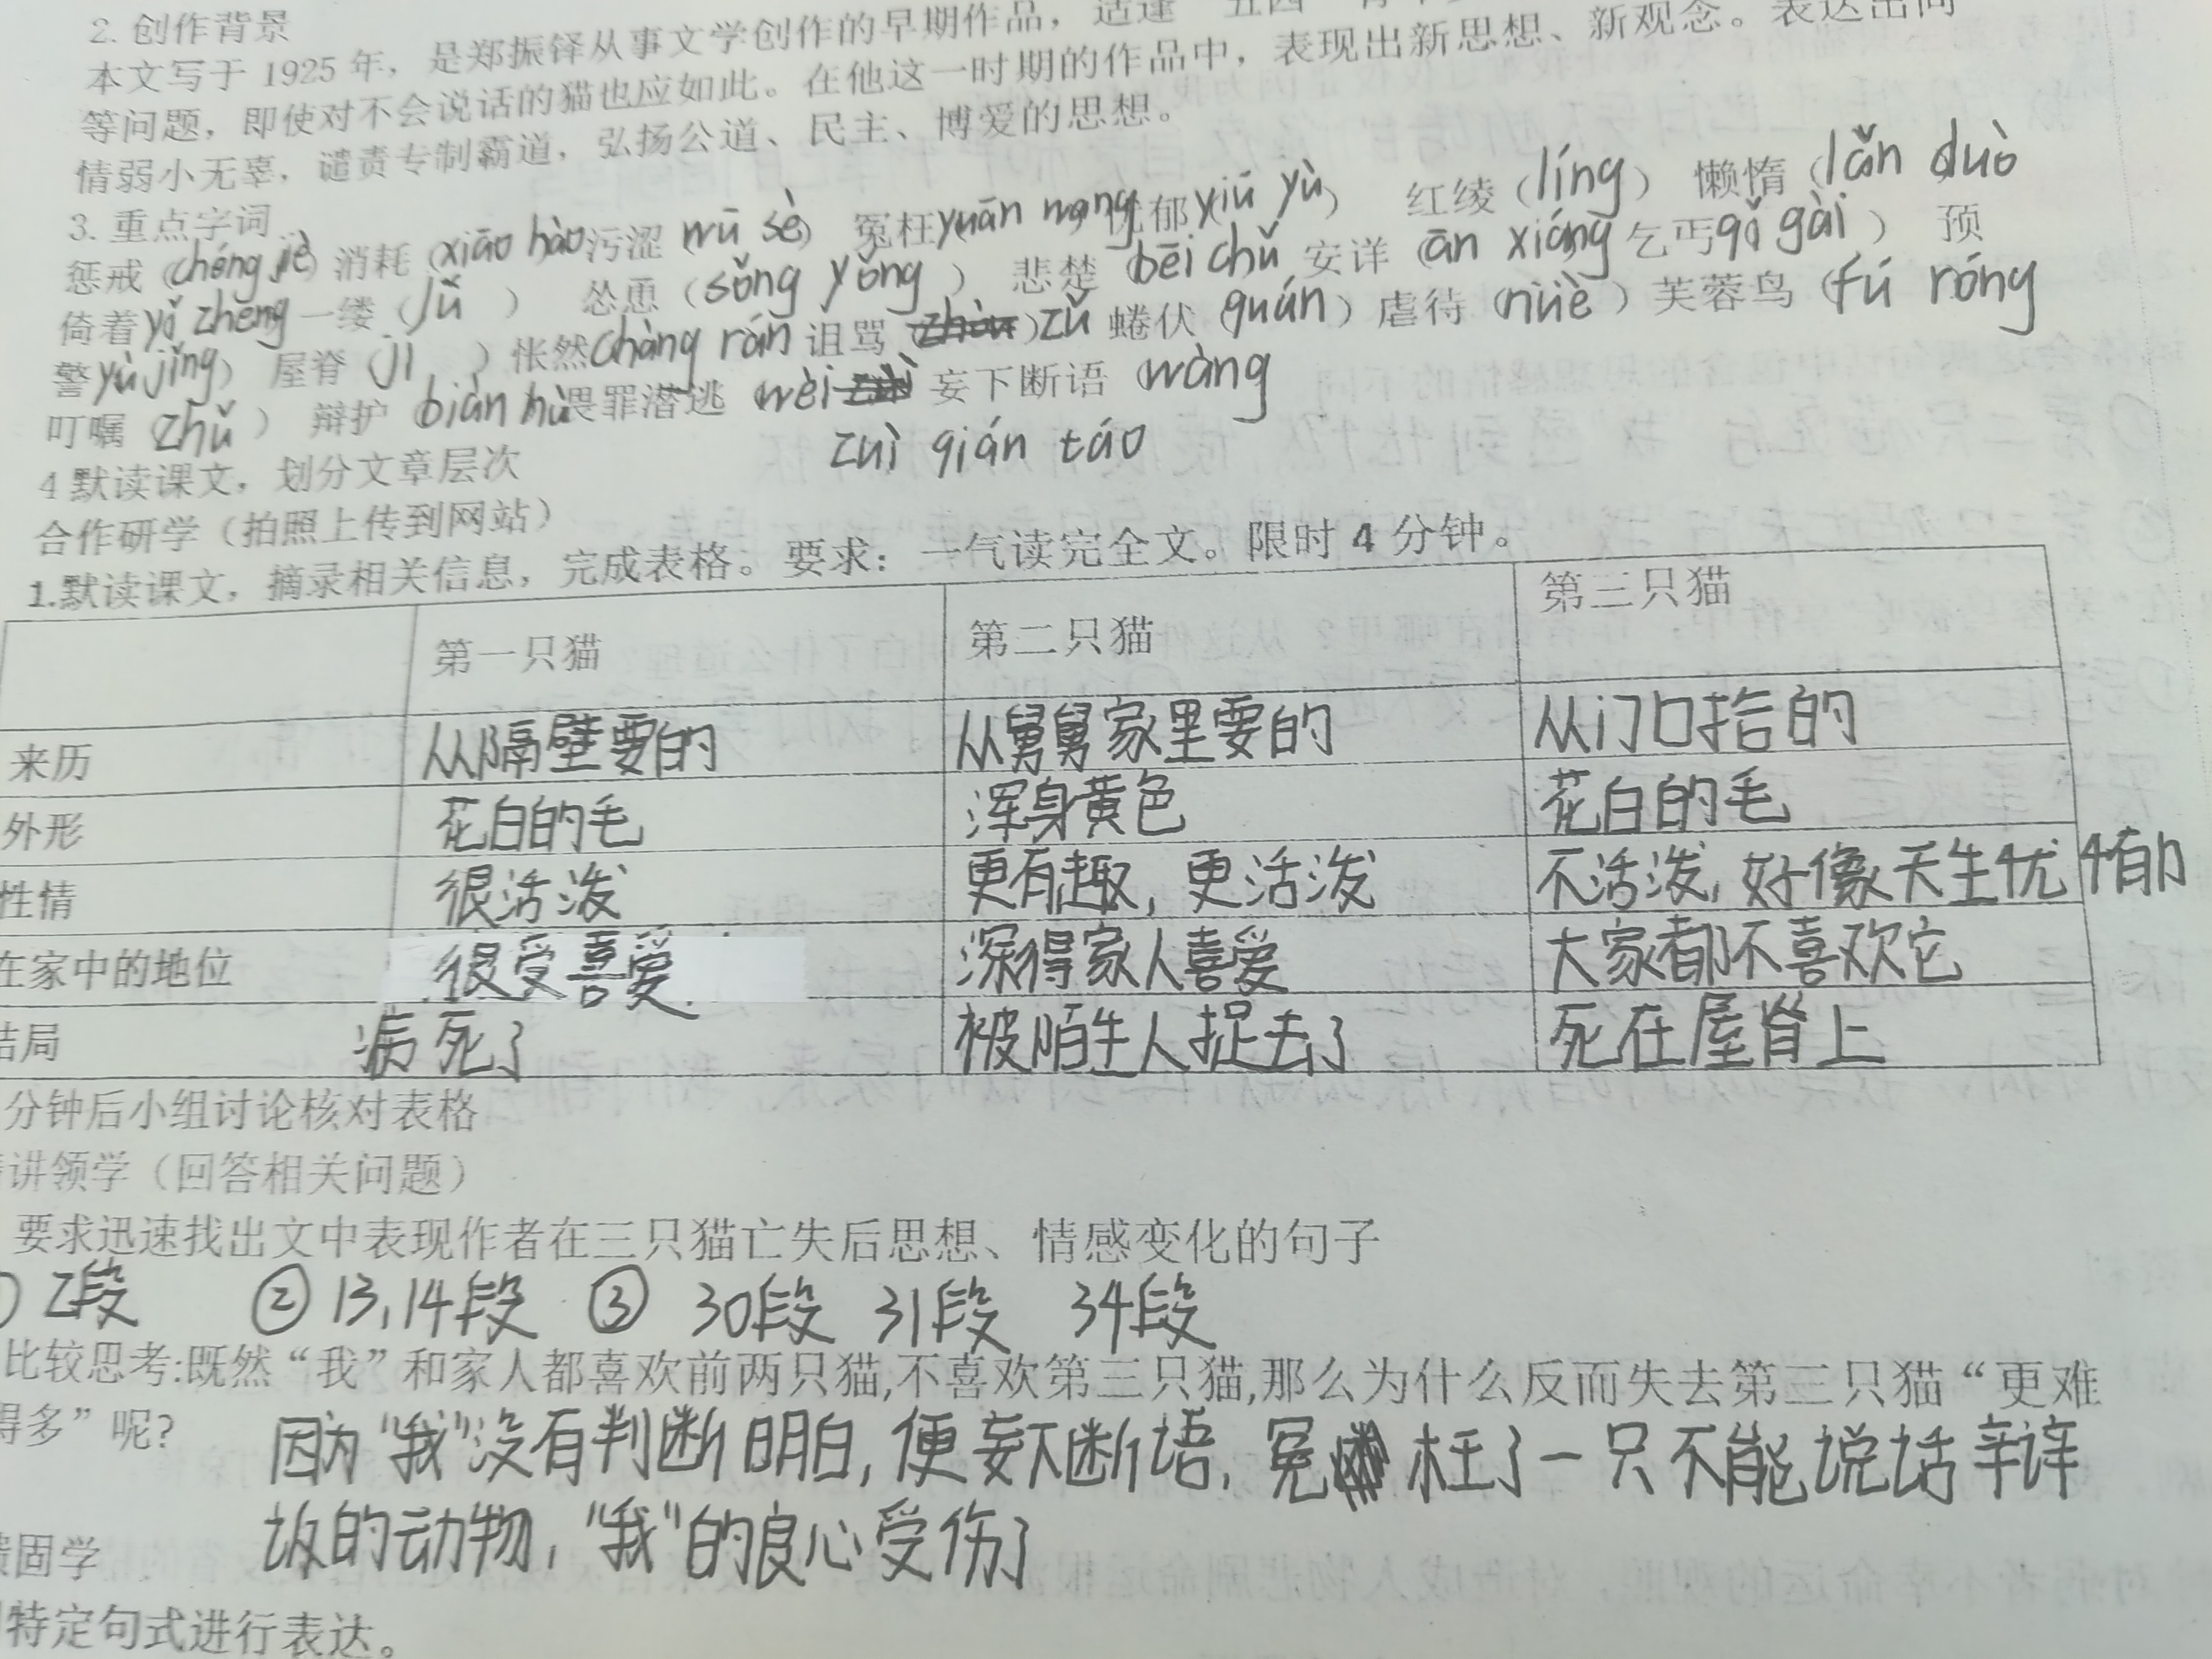 2. 创作背景
本文写于 1925 年，是郑振铎从事文学创作的早期作品，适逢
等问题，即使对不会说话的猫也应如此。在他这一时期的作品中，表现出新思想、新观念。表达出同
情弱小无辜，谴责专制霸道，弘扬公道、民主、博爱的思想。
3. 重点字词 污涩 wū sè） 冤枉 yuān wang 忧郁 yiú yù） 红绫（líng） 懒惰（lǎn duò
惩戒（chéng jiè）消耗（xiāo hào 怂恿（sǒng yǒng ） 悲楚 bēi chǔ 安详（ān xiáng 乞丐 qǐ gài ） 预
倚着 yǐ zheng 一缕（lǚ ） 诅骂 zǔ 蜷伏（quán）虐待（nüè）芙蓉鸟（fú róng
警 yù jǐng） 屋脊（jǐ ）怅然 chàng rán 妄下断语（wàng
叮嘱 zhǔ ） 辩护（biàn hù 畏罪潜逃 wèi
zuì qián táo
4 默读课文，划分文章层次
合作研学（拍照上传到网站）
1.默读课文，摘录相关信息，完成表格。要求：一气读完全文。限时 4 分钟。
第一只猫 第二只猫 第三只猫
来历 从隔壁要的 从舅舅家里要的 从门口拾的
外形 花白的毛 浑身黄色 花白的毛
性情 很活泼 更有趣，更活泼 不活泼，好像天生忧郁
在家中的地位 很受喜爱 深得家人喜爱 大家都不喜欢它
结局 病死了 被陌生人捉去了 死在屋脊上
分钟后小组讨论核对表格
讲领学（回答相关问题）
要求迅速找出文中表现作者在三只猫亡失后思想、情感变化的句子
2段 ② 13,14段 ③ 30段 31段 34段
比较思考:既然“我”和家人都喜欢前两只猫,不喜欢第三只猫,那么为什么反而失去第三只猫“更难
得多”呢?
因为“我”没有判断明白，便妄下断语，冤枉了一只不能说话辩
诉的动物，“我”的良心受伤了
固学
特定句式进行表达。